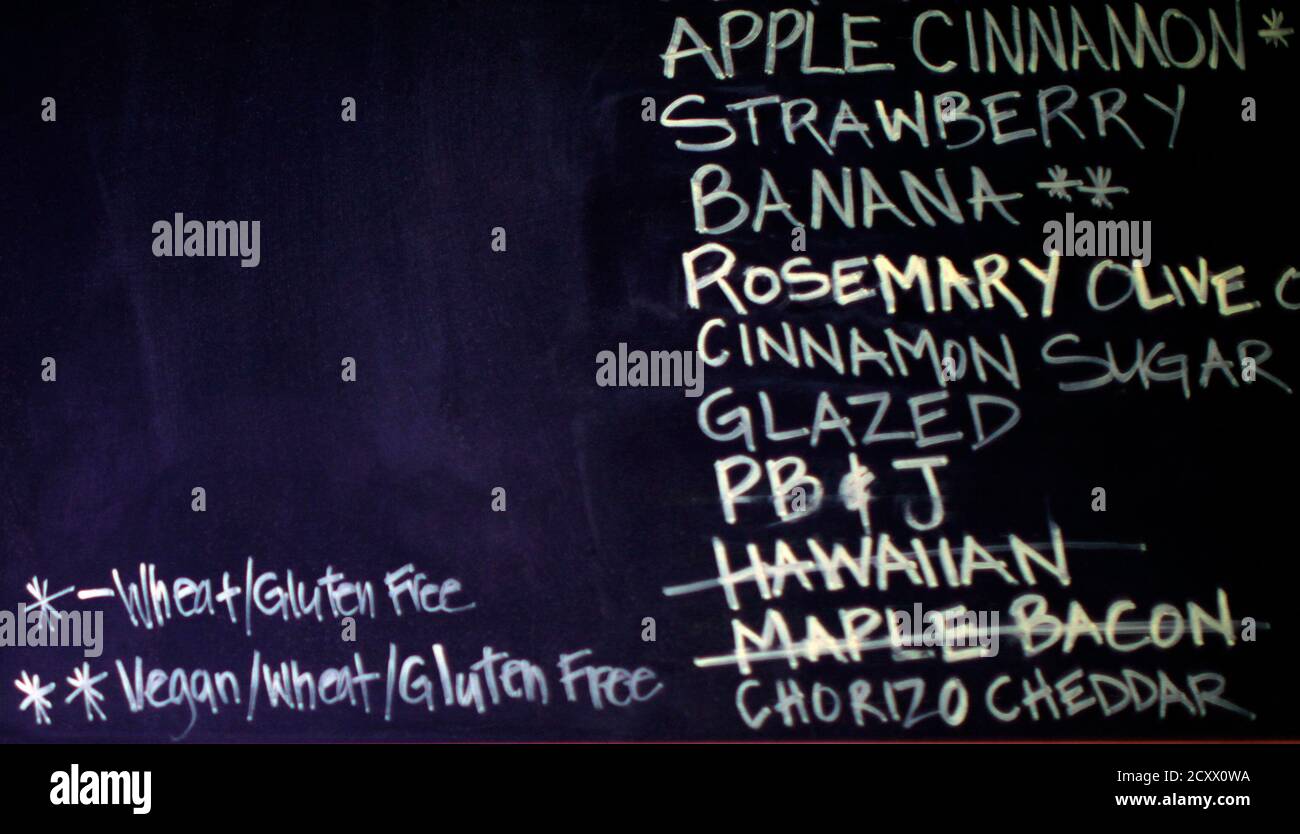 APPLE CINNAMON *
STRAWBERRY
BANANA **
ROSEMARY OLIVE
CINNAMON SUGAR
GLAZED
PB & J
HAWAIIAN
MAPLE BACON
CHORIZO CHEDDAR
* - Wheat/Gluten Free
** Vegan/Wheat/Gluten Free
alamy
alamy
alamy
a alamy
Image ID: 2CXX0WA
www.alamy.com